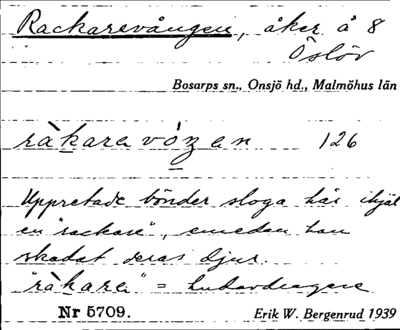 Rackarevången, åker å 8
Öslöv
Bosarps sn., Onsjö hd., Malmöhus län
ràkaravóꝫan 126
Uppretade bönder sloga här ihjäl
en "rackare", emedan han
skadat deras djur.
"ràkara" = hudavdragare
Nr 5709.
Erik W. Bergenrud 1939